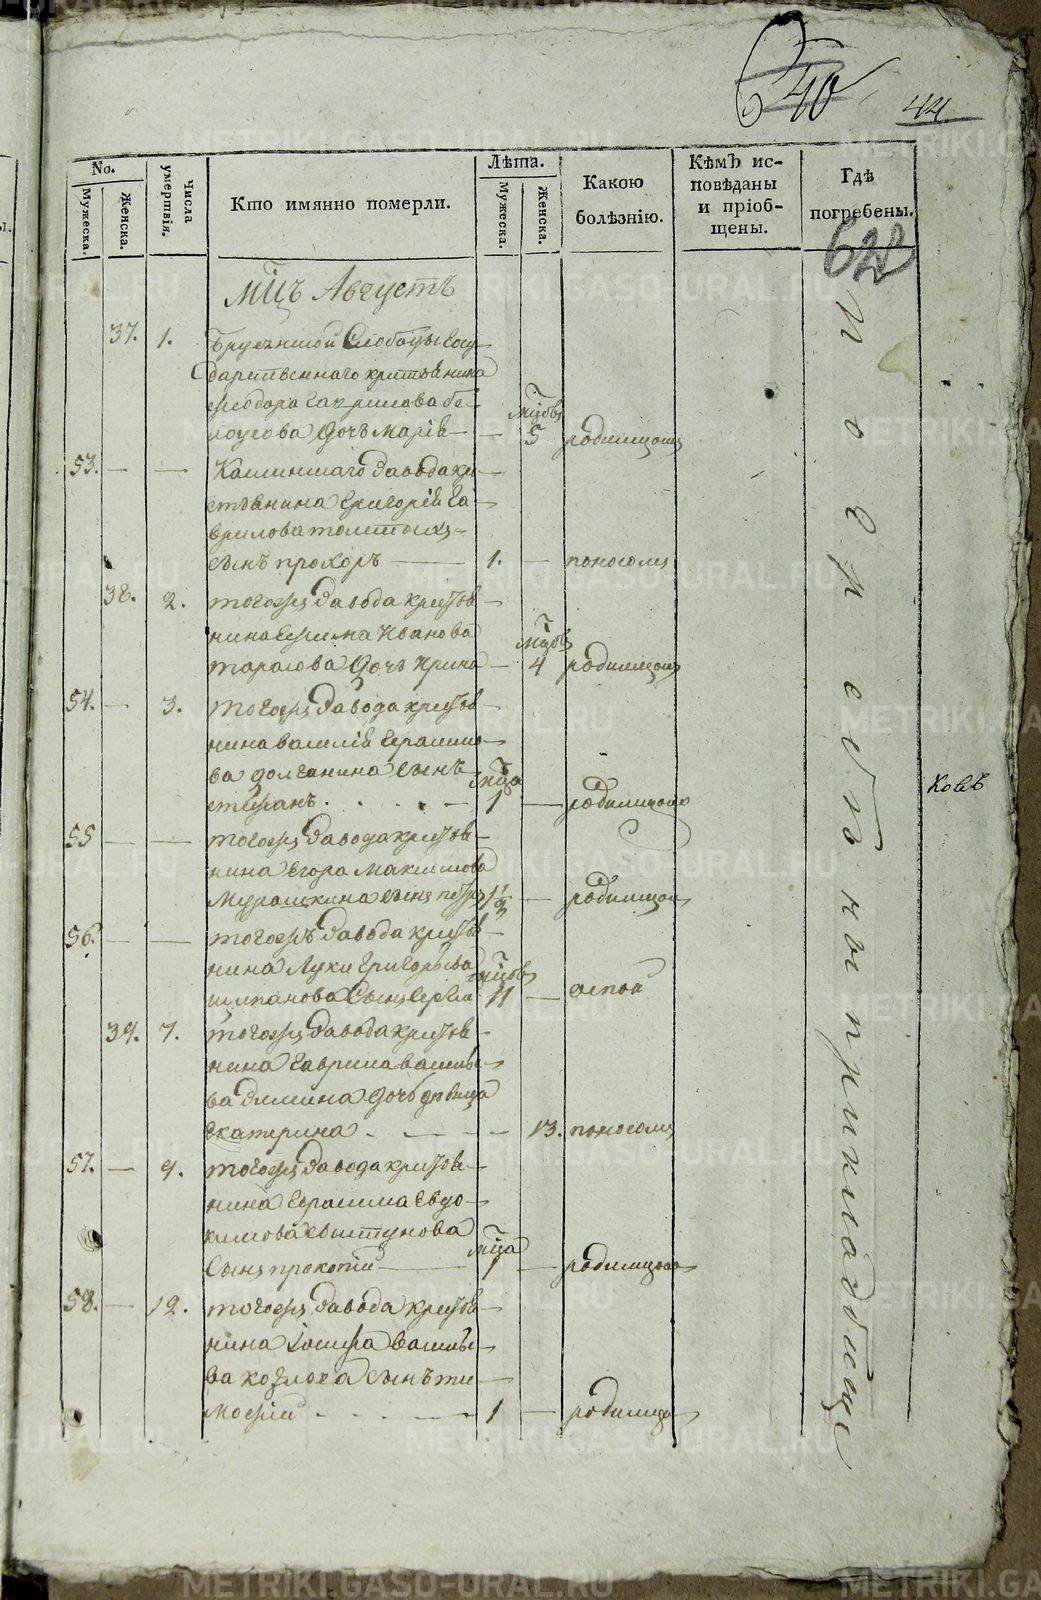 40
44
No.
Мужеска.
Женска.
Числа умершвія.
Кто имянно померли.
Лѣта.
Мужеска.
Женска.
Какою болѣзнію.
Кѣмъ ис-
повѣданы
и пріоб-
щены.
Гдѣ
погребены.
628
Мцъ Августъ
37. 1.
Слободы Госу
дарственнаго крстьянина
Феодора Гаврилова бе
лоусова дочь марія — мцовъ 5 родимцомъ
53. — — завода кр
стьянина Григорія Га
врилова толстыхъ
сынъ прохоръ — 1. — поносомъ
38. 2. тогожъ завода кристья
нина Ефима Иванова
тарасова дочь Ирина — мцовъ 4 родимцомъ
54. — 3. тогожъ завода кристья
нина василія Герасимо
ва долганина сынъ
стефанъ. мца 1 — родимцомъ
55 — — тогожъ завода кристья
нина Егора Максимова
Мурашкина сынъ петръ 1½ — родимцомъ
56. — — тогожъ завода кристья
нина Луки Григорьева
сынъ Сергій мцовъ 11 — оспой
39. 7. тогожъ завода кристья
нина Гаврила василье
ва зимина дочь девица
Екатерина 13. поносомъ
57. — 9. тогожъ завода кристья
нина Герасима Евдо
кимова свистунова
сынъ прокопій — мца 1 — родимцомъ
58. — 12. тогожъ завода кристья
нина Іосифа василье
ва козлова сынъ ти
мофей 1 — родимцо
Погребены при кладбище
ковъ
METRIKI.GASO-URAL.RU